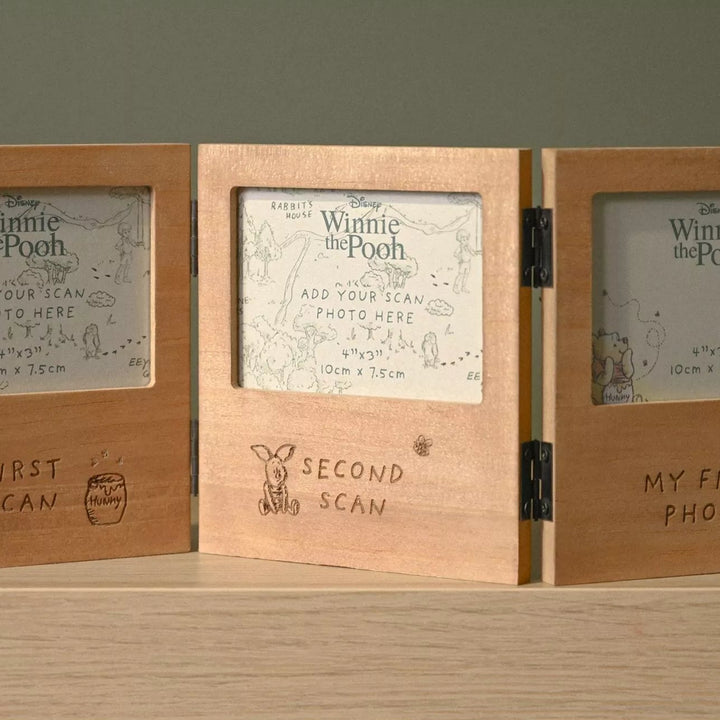 DISNEY
innie
ePooh
YOUR SCAN
TO HERE
4"x3"
0cm x 7.5cm
IRST
CAN
HUNNY
RABBIT'S
HOUSE
DISNEY
Winnie
the Pooh
ADD YOUR SCAN
PHOTO HERE
4"x3"
10cm x 7.5cm
SECOND
SCAN
DIS
Winn
thePo
4"x
10cm x
HUNNY
MY FI
PHO